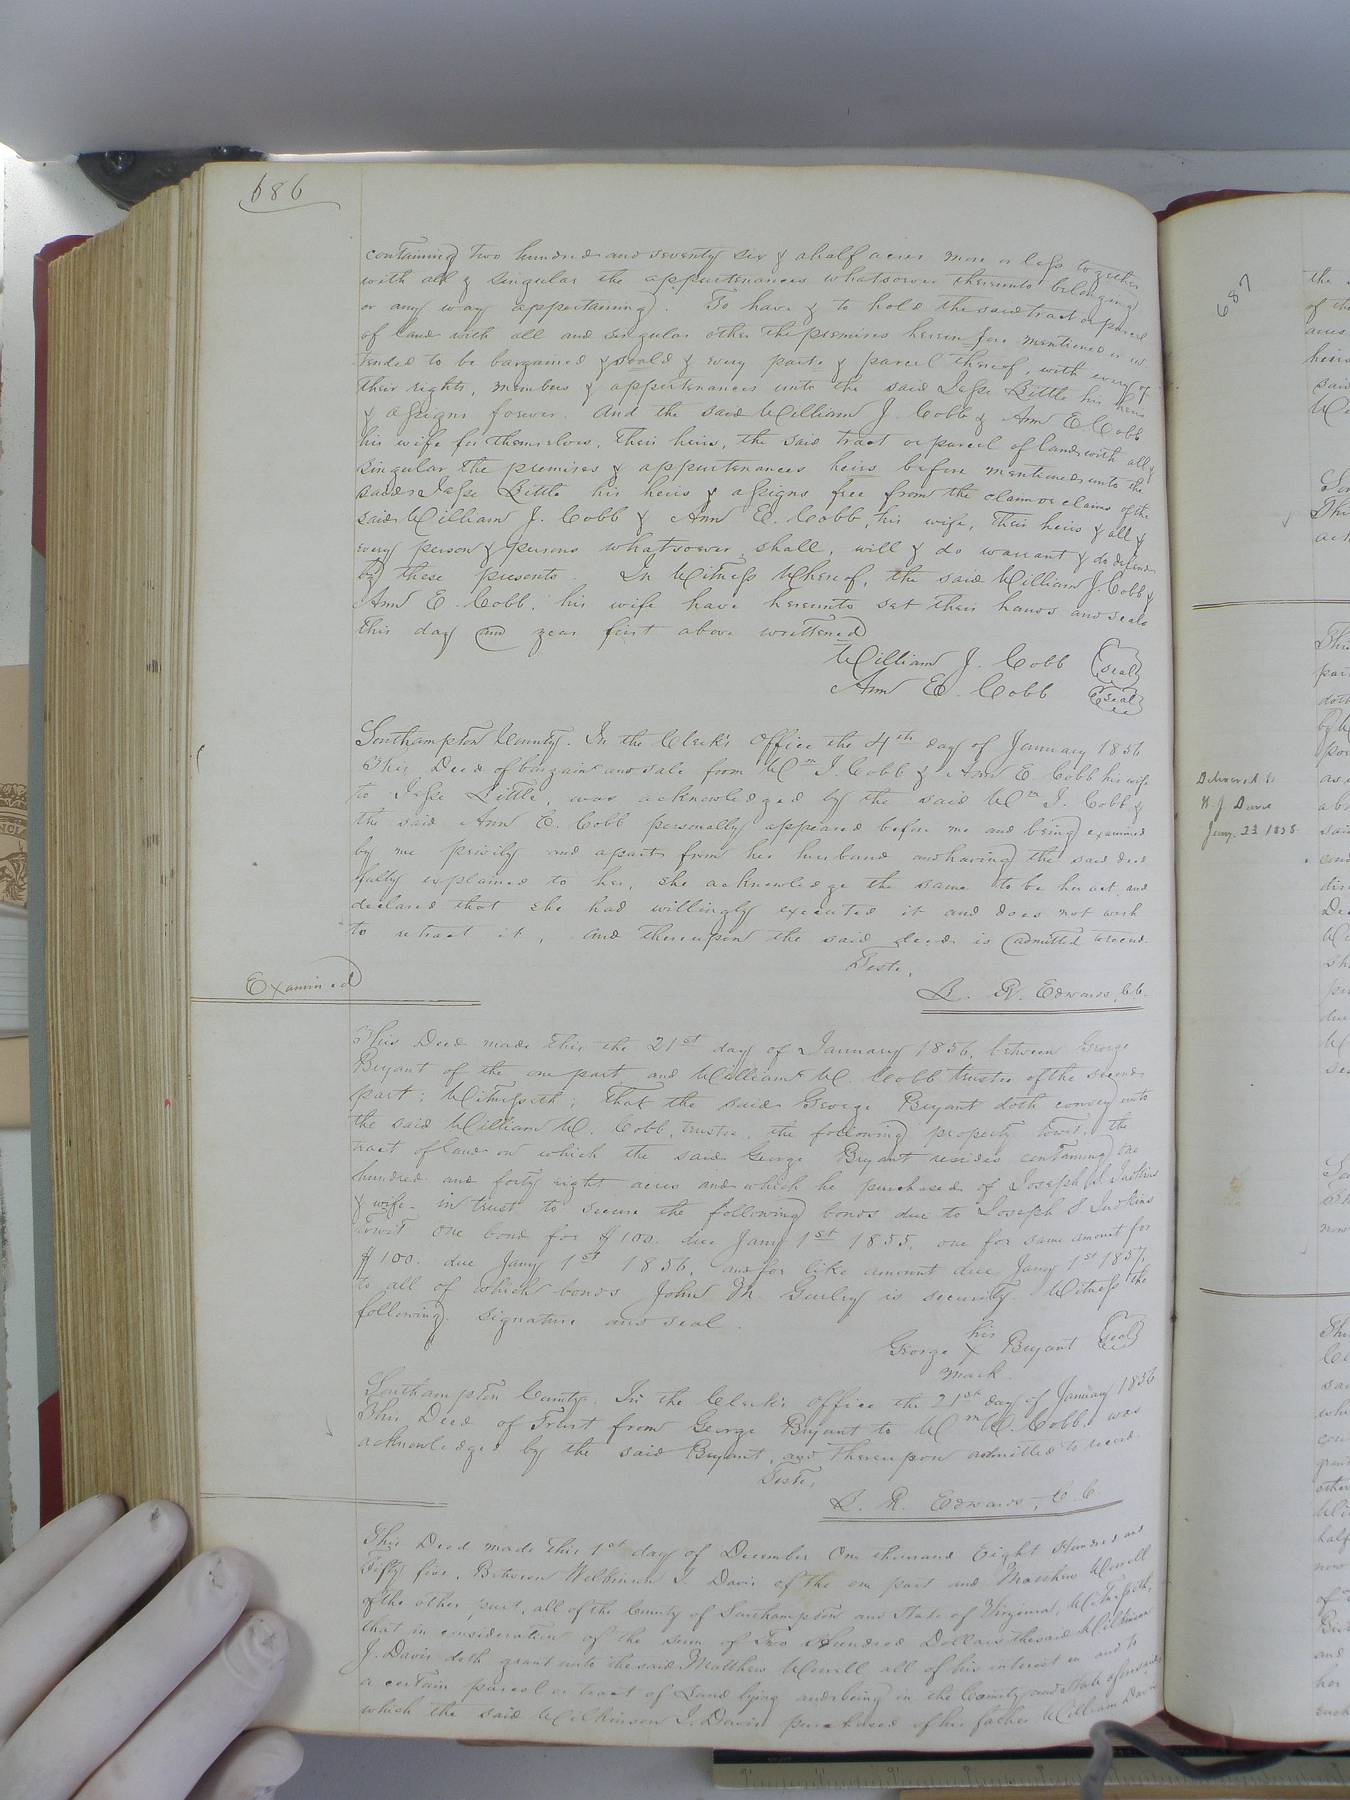 686
containing two hundred and seventy six & a half acres more or less together
with all & singular the appurtenances whatsoever thereunto belonging
or any way appertaining. To have & to hold the said tract or parcel
of land with all and singular other the premises herein fore mentioned or in
tended to be bargained & sold & every parte & parcel thereof, with every of
their rights, members & appurtenances unto the said Jesse Little his heirs
& assigns forever. And the said William J. Cobb & Ann E Cobb
his wife for themselves, their heirs, the said tract or parcel of land with all &
singular the premises & appurtenances heirs before mentioned unto the
said Jesse Little his heirs & assigns free from the claim or claims of the
said William J. Cobb & Ann E. Cobb, his wife, their heirs & all &
every person & persons whatsoever shall, will & do warrant & do defend
by these presents. In Witness Whereof, the said William J. Cobb &
Ann E. Cobb, his wife have hereunto set their hands and seals
this day and year first above writtened
William J. Cobb (seal)
Ann E. Cobb (seal)
Southampton County. In the Clerk's Office the 4th day of January 1856
This Deed of bargain and sale from Wm J. Cobb & Ann E Cobb his wife
to Jesse Little, was acknowledged by the said Wm J. Cobb &
the said Ann E. Cobb personally appeared before me and being examined
by me privily and apart from her husband and having the said deed
fully explained to her, she acknowledge the same to be her act, and
declared that she had willingly executed it and does not wish
to retract it, and thereupon the said deed is admitted to record.
Teste,
L. R. Edwards, C.C.
Examined
This Deed made this the 21st day of January 1856, between George
Bryant of the one part and William W. Cobb trustee of the second
part; Witnesseth; That the said George Bryant doth convey unto
the said William W. Cobb, trustee, the following property towit, the
tract of land on which the said George Bryant resides containing One
hundred and forty eight acres and which he purchased of Joseph S. Judkins
& wife. in trust to secure the following bonds due to Joseph S. Judkins
towit One bond for $100. due Jany 1st 1855, one for same amount for
$100. due Jany 1st 1856, and for like amount due Jany 1st 1857,
to all of which bonds John M. Gurley is security. Witness the
following signature and seal.
his
George X Bryant (seal)
mark.
Southampton County. In the Clerk's Office the 21st day of January 1856
This Deed of Trust from George Bryant to Wm W. Cobb, was
acknowledged by the said Bryant, and thereupon admitted to record.
Teste,
L. R. Edwards, C.C.
This Deed made this 1st day of December One thousand Eight Hundred and
Fifty five, Between Wilkinson J. Davis of the one part and Matthew Worrell
of the other part, all of the County of Southampton and State of Virginia, Witnesseth,
that in consideration of the sum of Two Hundred Dollars the said Wilkinson
J. Davis doth grant unto the said Matthew Worrell all of his interest in and to
a certain parcel or tract of Land lying and being in the County and State aforesaid
which the said Wilkinson J. Davis purchased of his father William Davis
687
Delivered to
W. J. Davis
Jany. 23 1858